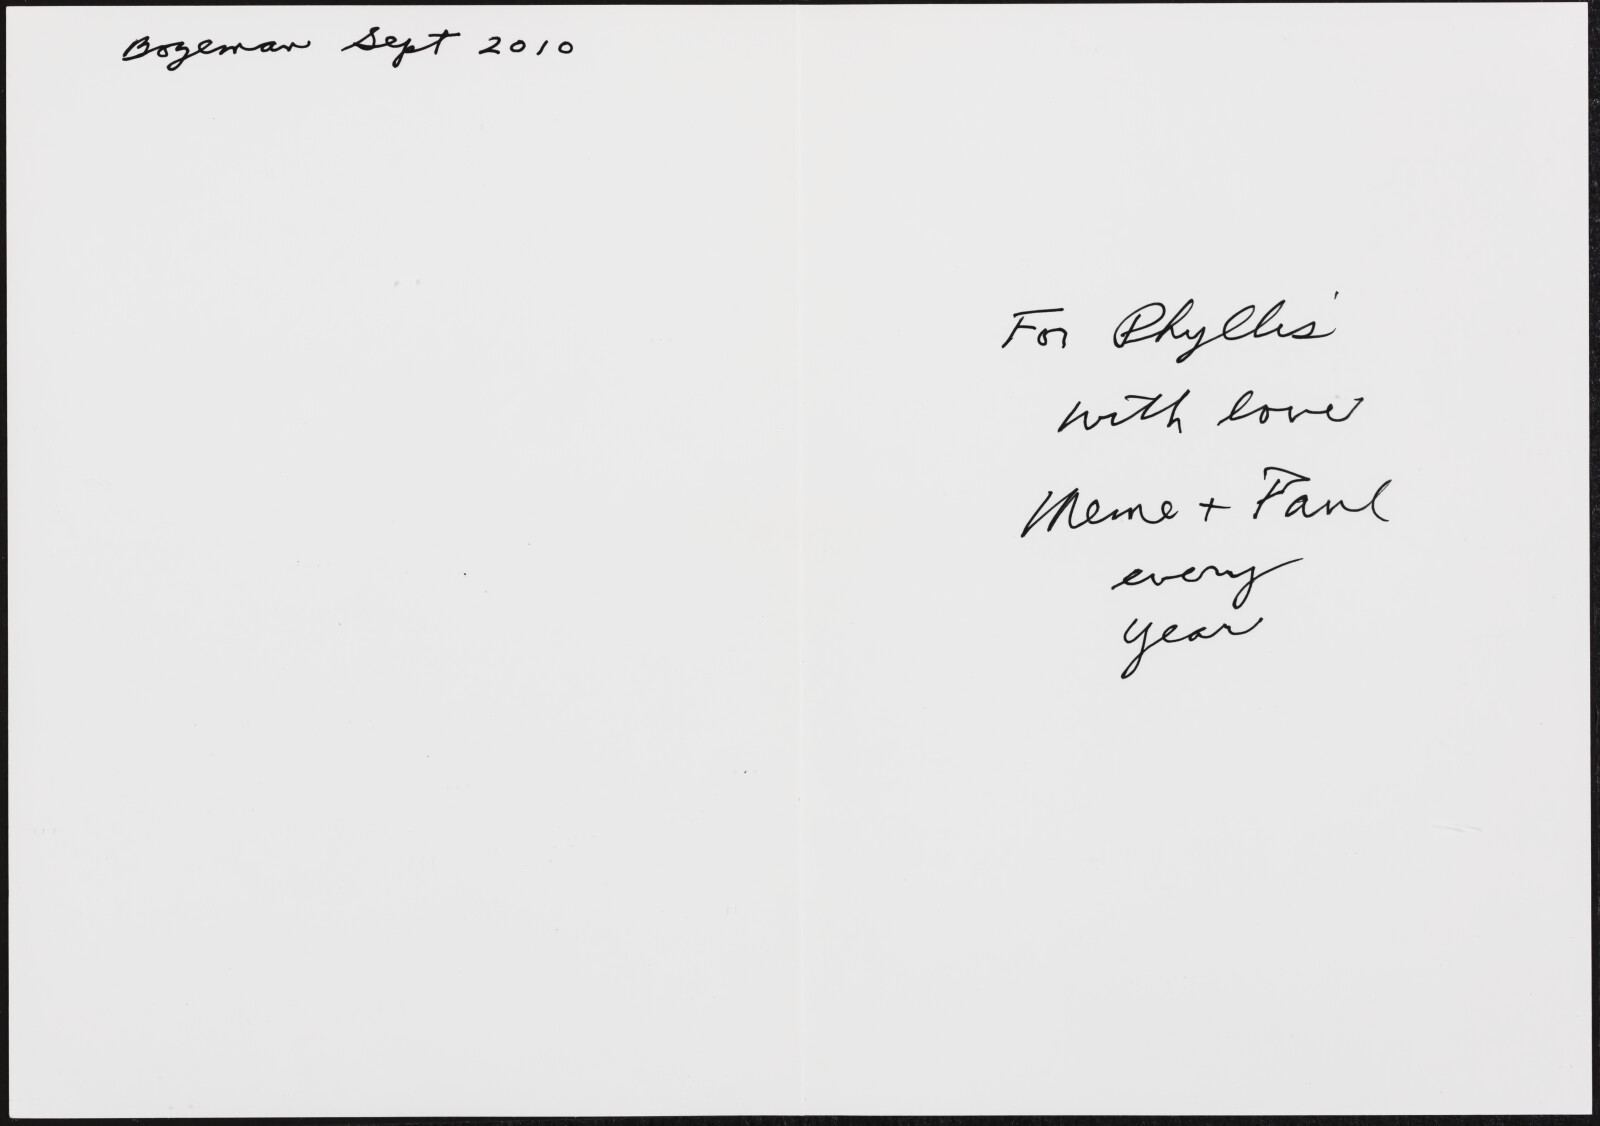 Bozeman Sept 2010
For Phyllis
with love
Meme + Paul
every
year